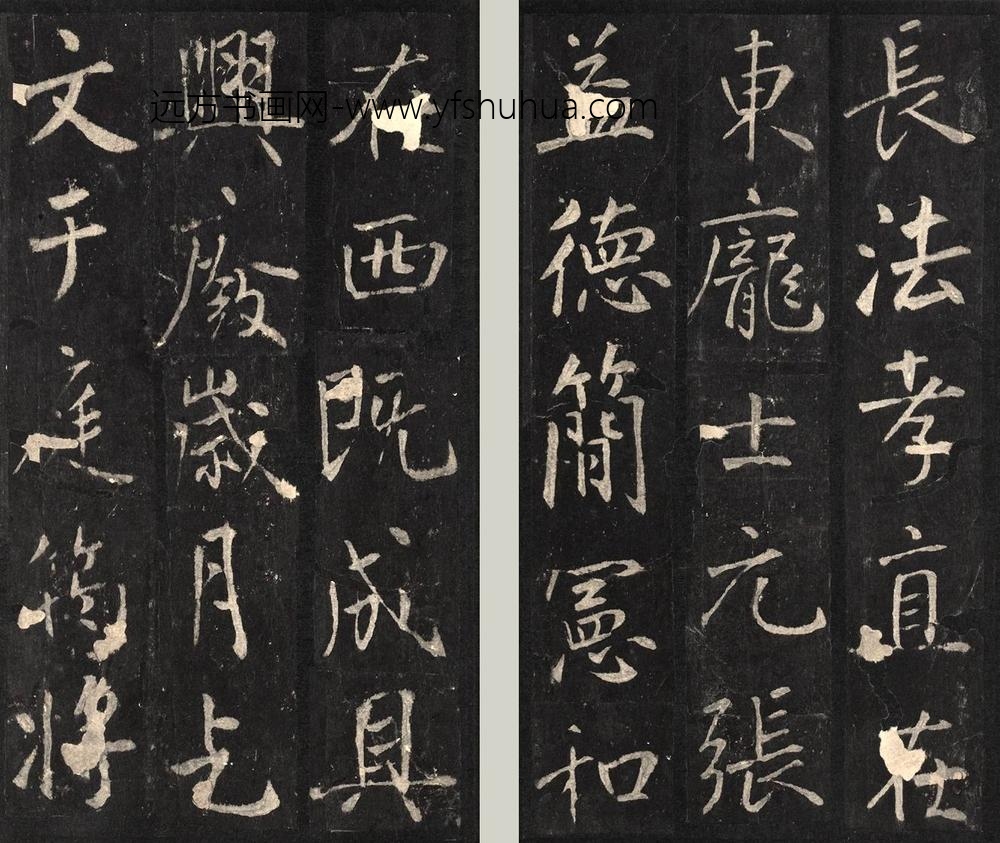 長法孝直在
東龐士元張
益德簡憲和
在西既成具
興廢歲月乞
文于庭筠將
远方书画网-www.yfshuhua.com